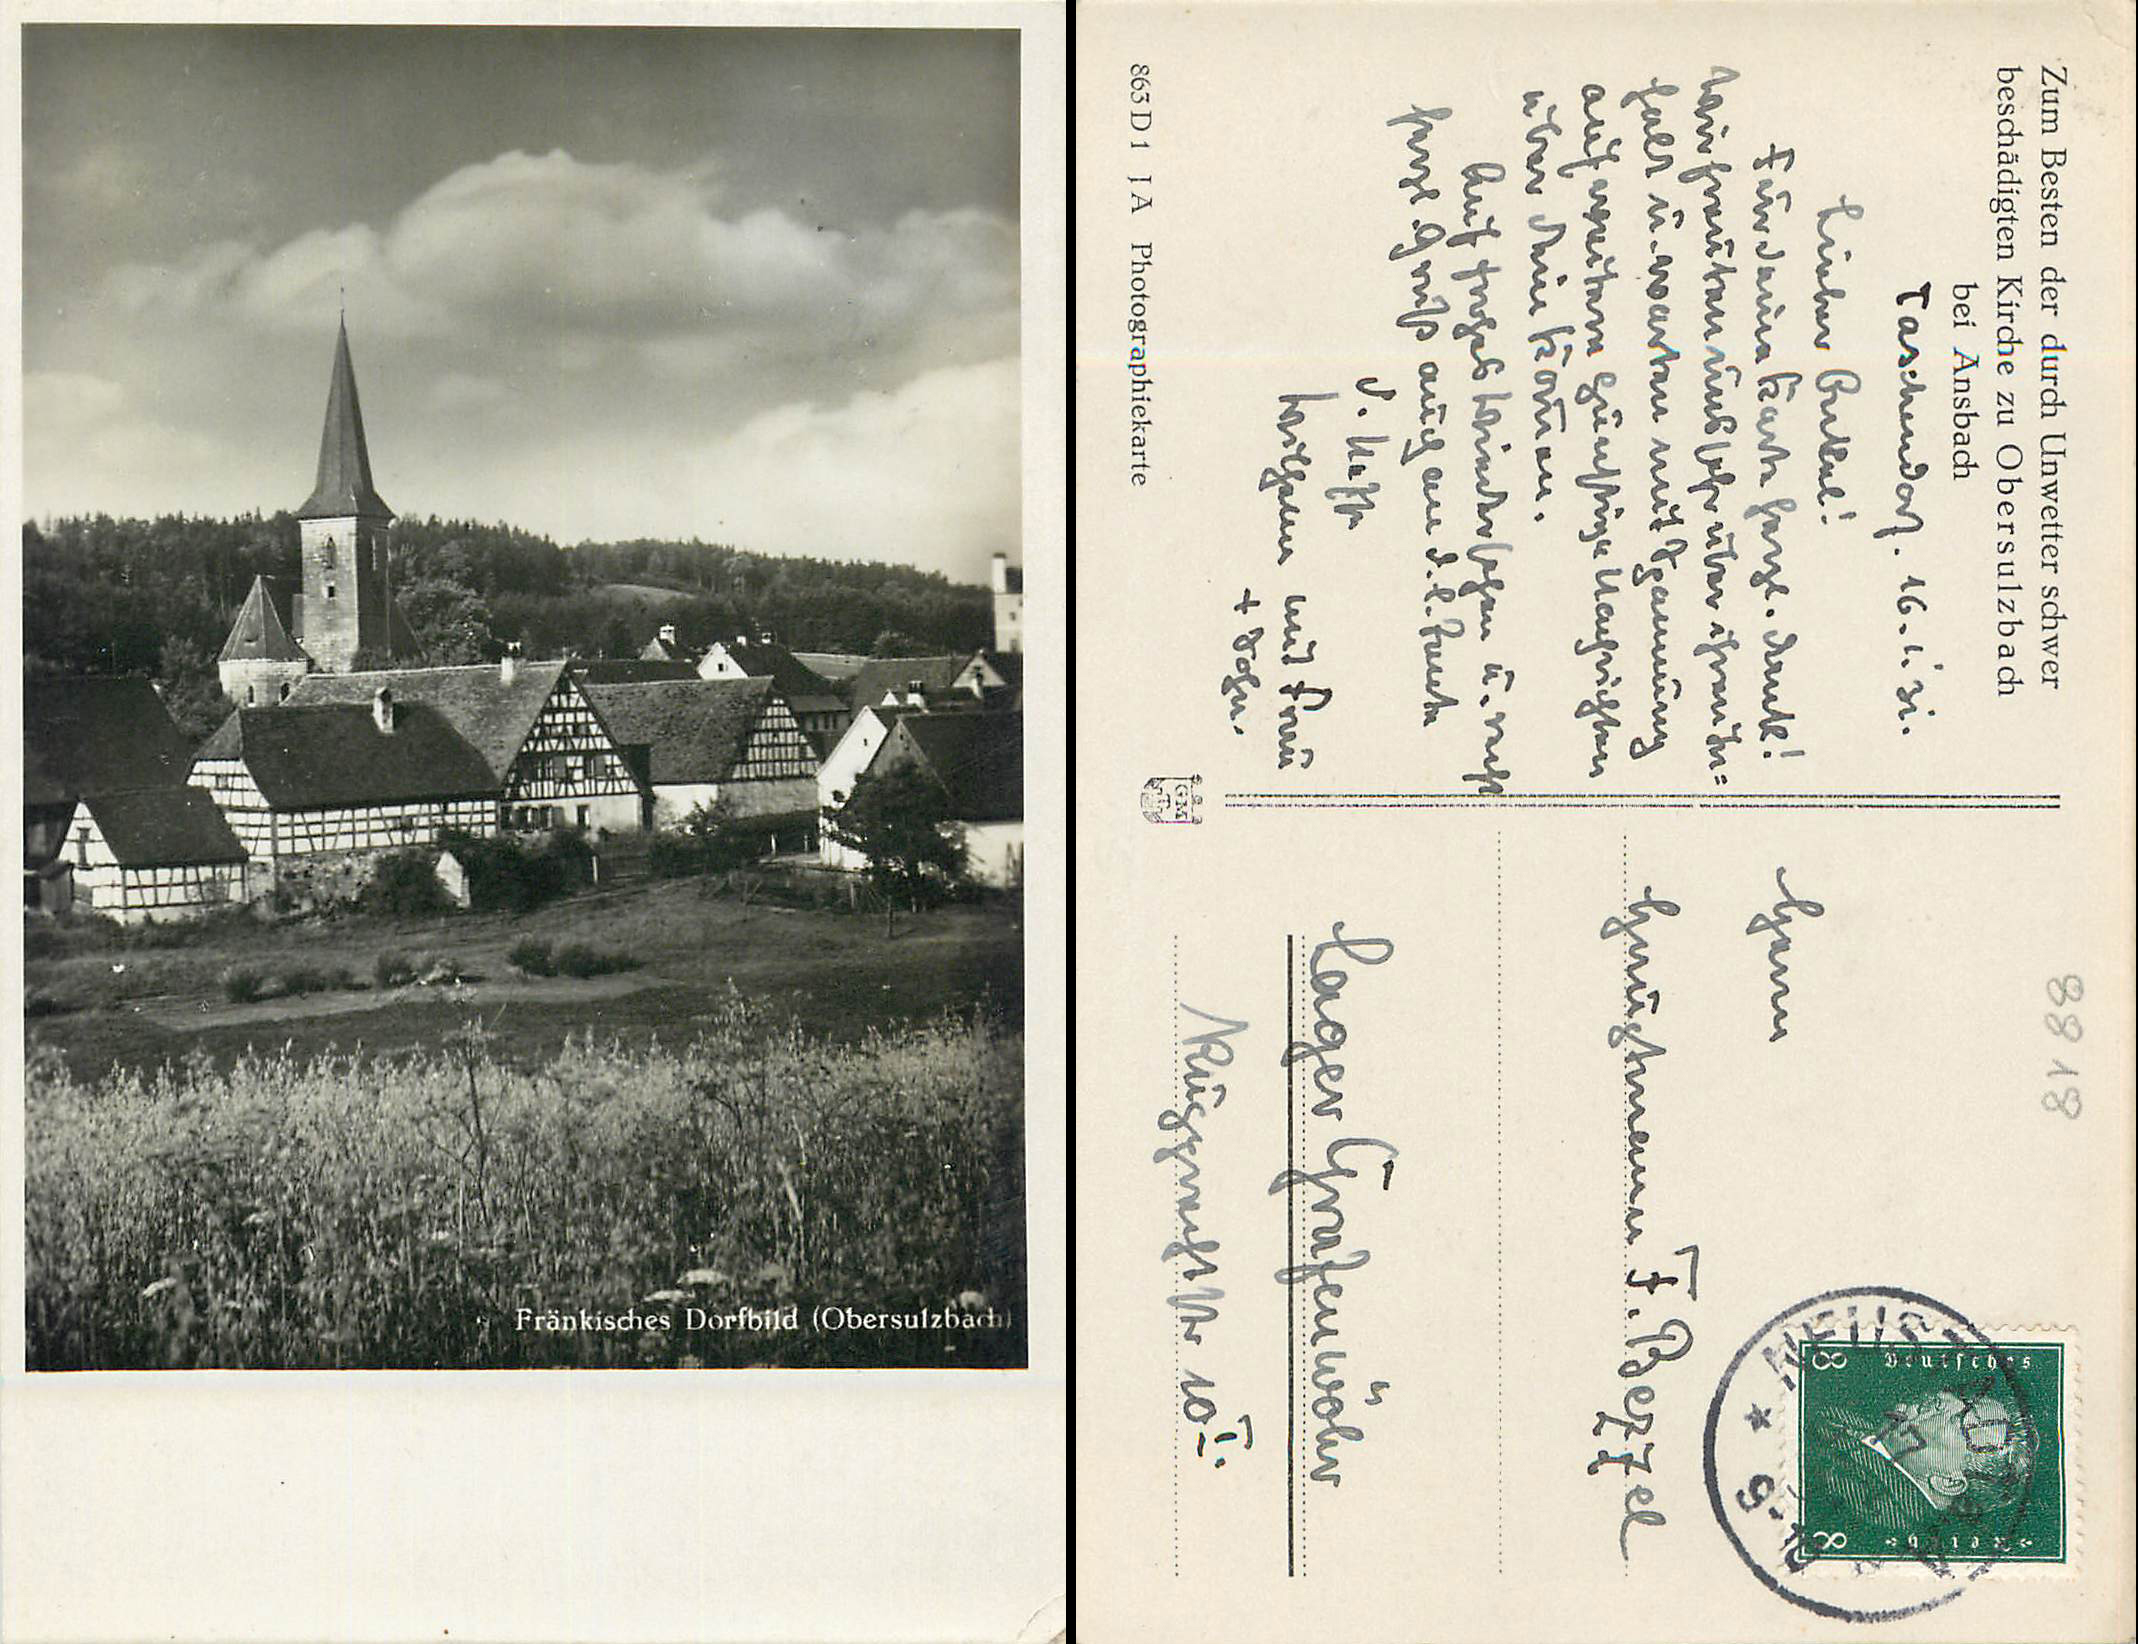 Fränkisches Dorfbild (Obersulzbach)
Zum Besten der durch Unwetter schwer
beschädigten Kirche zu Obersulzbach
bei Ansbach
Taschendorf. 16. 1. 31.
Lieber Onkel!
Für deine Karte herzl. Dank!
Wir freuten uns sehr über
u. warten mit Spannung
auf weitere günstige Nachrichten
über dein Kommen.
Auf frohes Wiedersehen u. recht
herzl. Gruß auch an d. l. Tante
d. Neffe
Wilhelm mit Frau
+ Sohn.
863 D 1 J A Photographiekarte
GM
8818
Herrn
Hauptmann F. Bezzel
Lager Grafenwöhr
10 I.
Deutsches
Reich
8 8